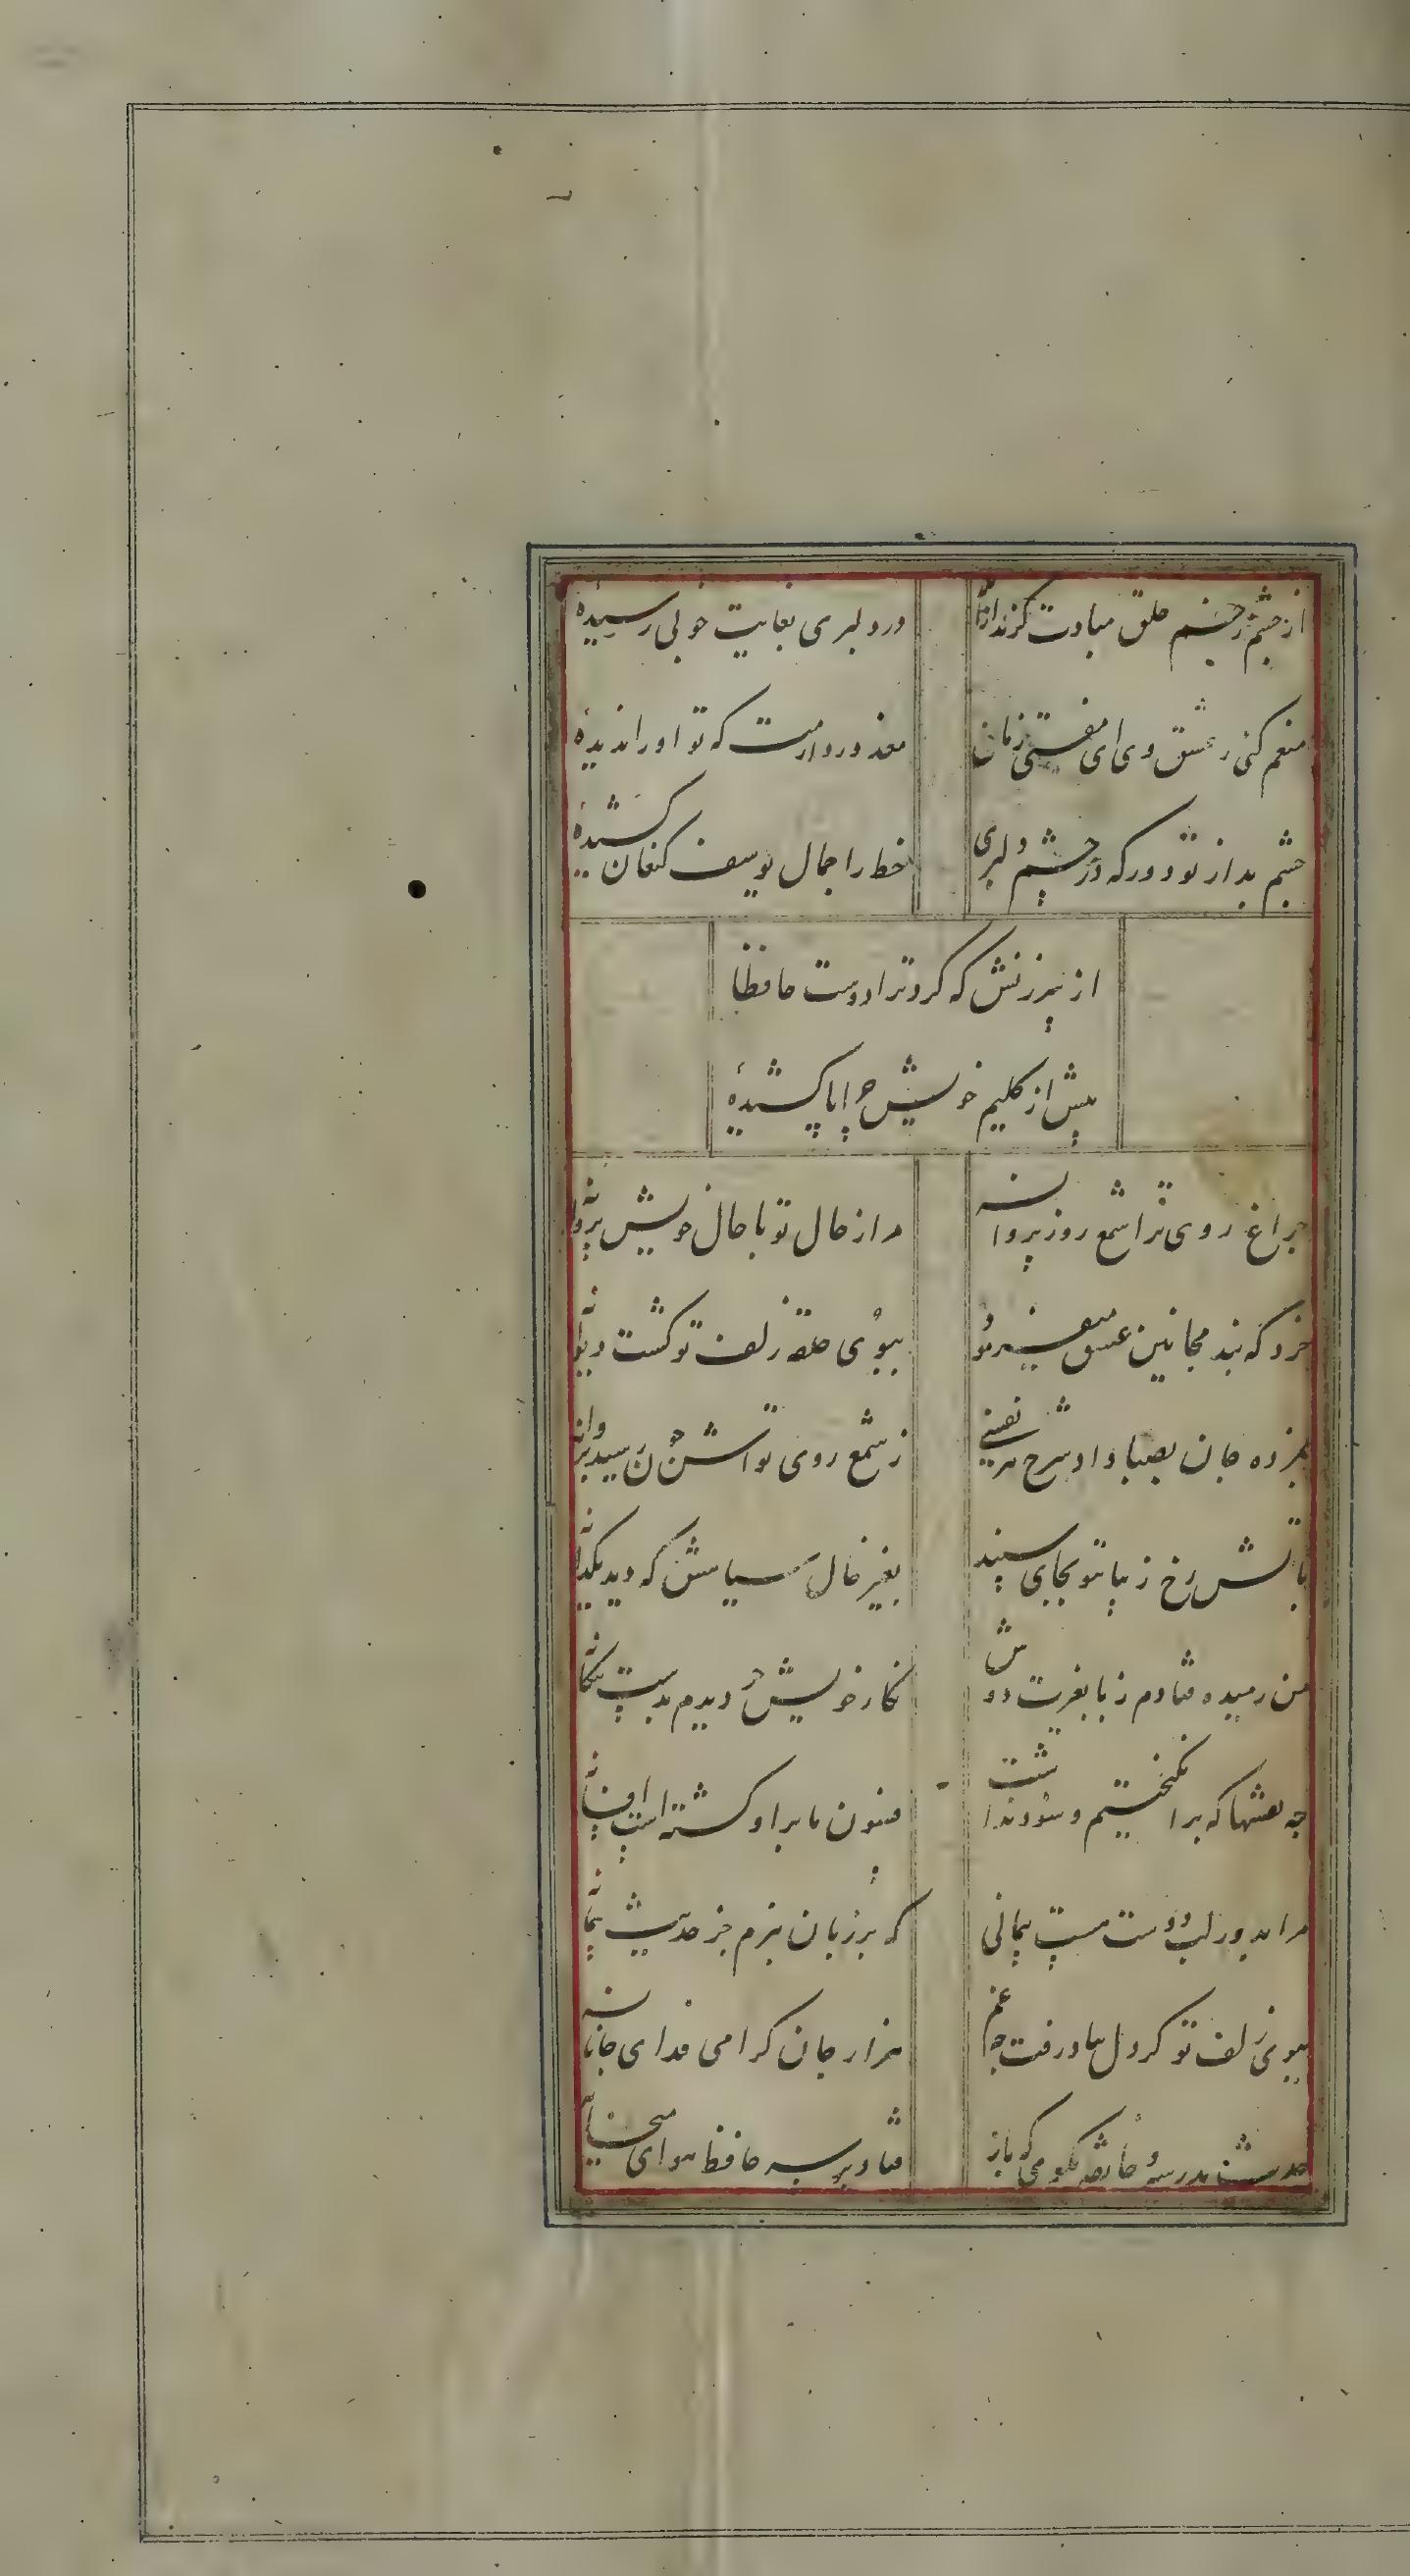 از چشم زخم خلق مبادت گزند از آنک
در دلبری بغایت خوبی رسیدهٔ
منعم کنی ز عشق وی ای مفتی زمان
معذور دارمت که تو او را ندیدهٔ
چشم بد از تو دور که در چشم دلبری
خط را جمال یوسف کنعان کشیدهٔ
از سرزنش که کرد ترا دوست حافظا
بیش از کلیم خویش چرا پا کشیدهٔ
چراغ روی ترا شمع روز پروانه
مرا ز حال تو با حال خویش پروانه
خرد که بند مجانین عشق میفرمود
ببوی حلقه زلف تو کشت دیوانه
بمژده جان بصبا داد شمع در نفسی
ز شمع روی تواش چون رسید پروانه
باتش رخ زیباتو بجای سپند
بغیر خال سیاهش که دید بکدانه
من رمیده فتادم ز پا بغیرت دوش
نکار خویش چو دیدم بدست بیکانه
چه نقشها که برانکیختیم و سود نداشت
فسون ما بر او کشته است افسانه
مرا بدور لب دوست هست پیمانی
که بر زبان نبرم جز حدیث پیمانه
ببوی زلف تو کر دل بباد رفت چه غم
هزار جان کرامی فدای جانانه
حدیث مدرسه و خانقه مکوی که باز
فتاد بر سر حافظ هوای میخانه